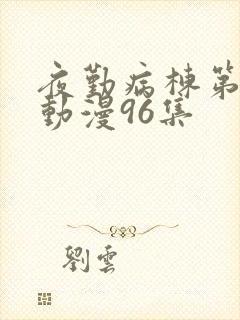 夜勤病棟第
動漫96集
劉雲